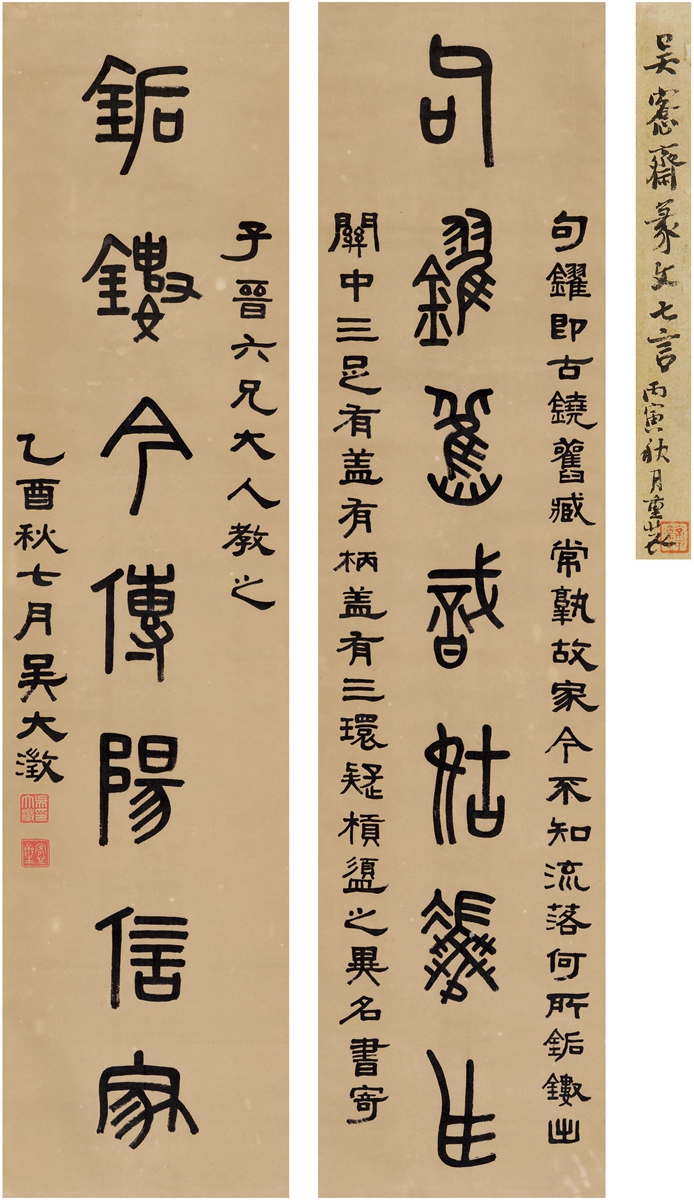 吳愙齋篆文七言
丙寅秋月重裝
句鑃即古鐃舊臧常孰故家今不知流落何所鉐鏤出
句鑃舊識姑
關中三足有盖有柄盖有三環疑槓盨之異名書寄
子晉六兄大人教之
鉐鏤今傳陽信家
乙酉秋七月吳大澂